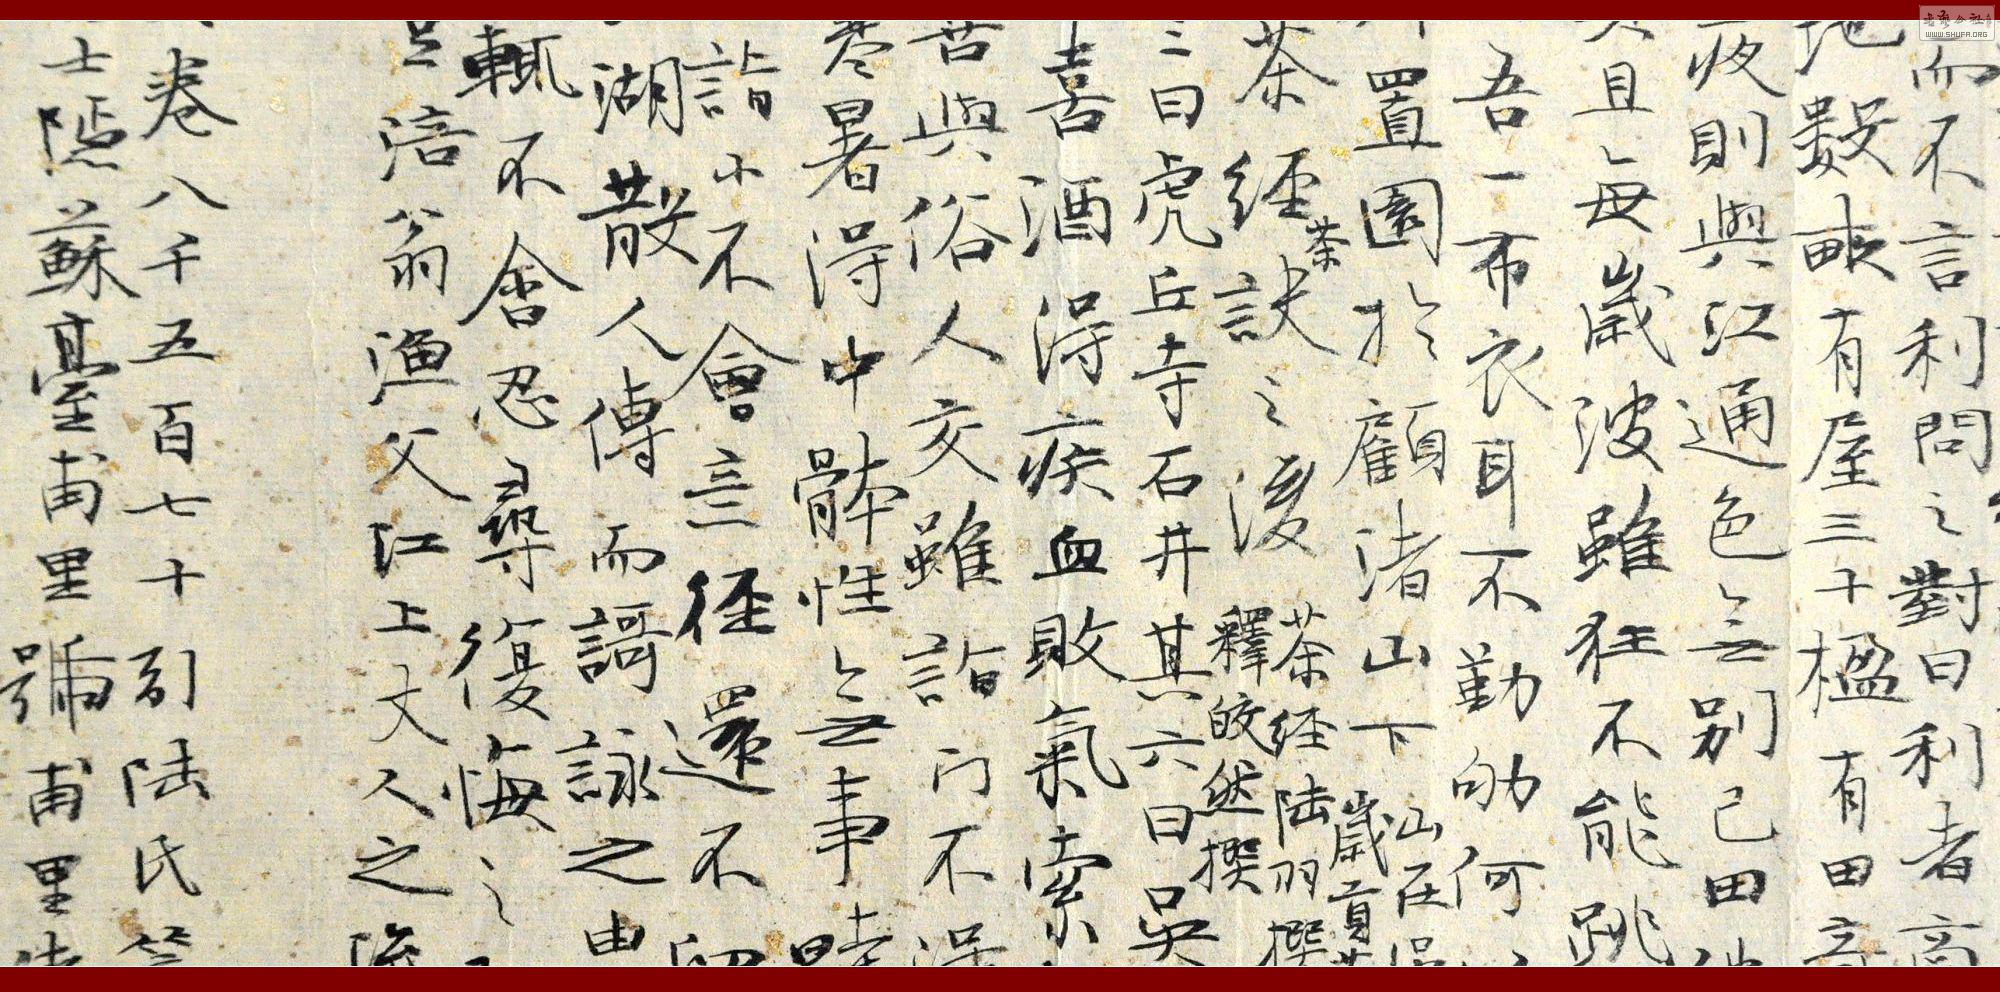 而不言利問之對曰利者商
地數畝有屋三十楹有田
夜則與江通色無别己田
且每歲波雖狂不能跳
吾一布衣耳不勤劬何
置園於顧渚山下
山在
歲貢茶
茶經茶訣之後
茶經陸羽撰
釋皎然撰
三曰虎丘寺石井其六曰吳
喜酒得疾血敗氣索
苦與俗人交雖詣門不得
暑得中體性無事時
詣小不會言徑還不留
湖散人傳而謌詠之由
輒不舍忍尋復悔之
涪翁漁父江上丈人之流
卷八千五百七十引陸氏
士陸蘇臺甫里號甫里
书法公社
WWW.SHUFA.ORG